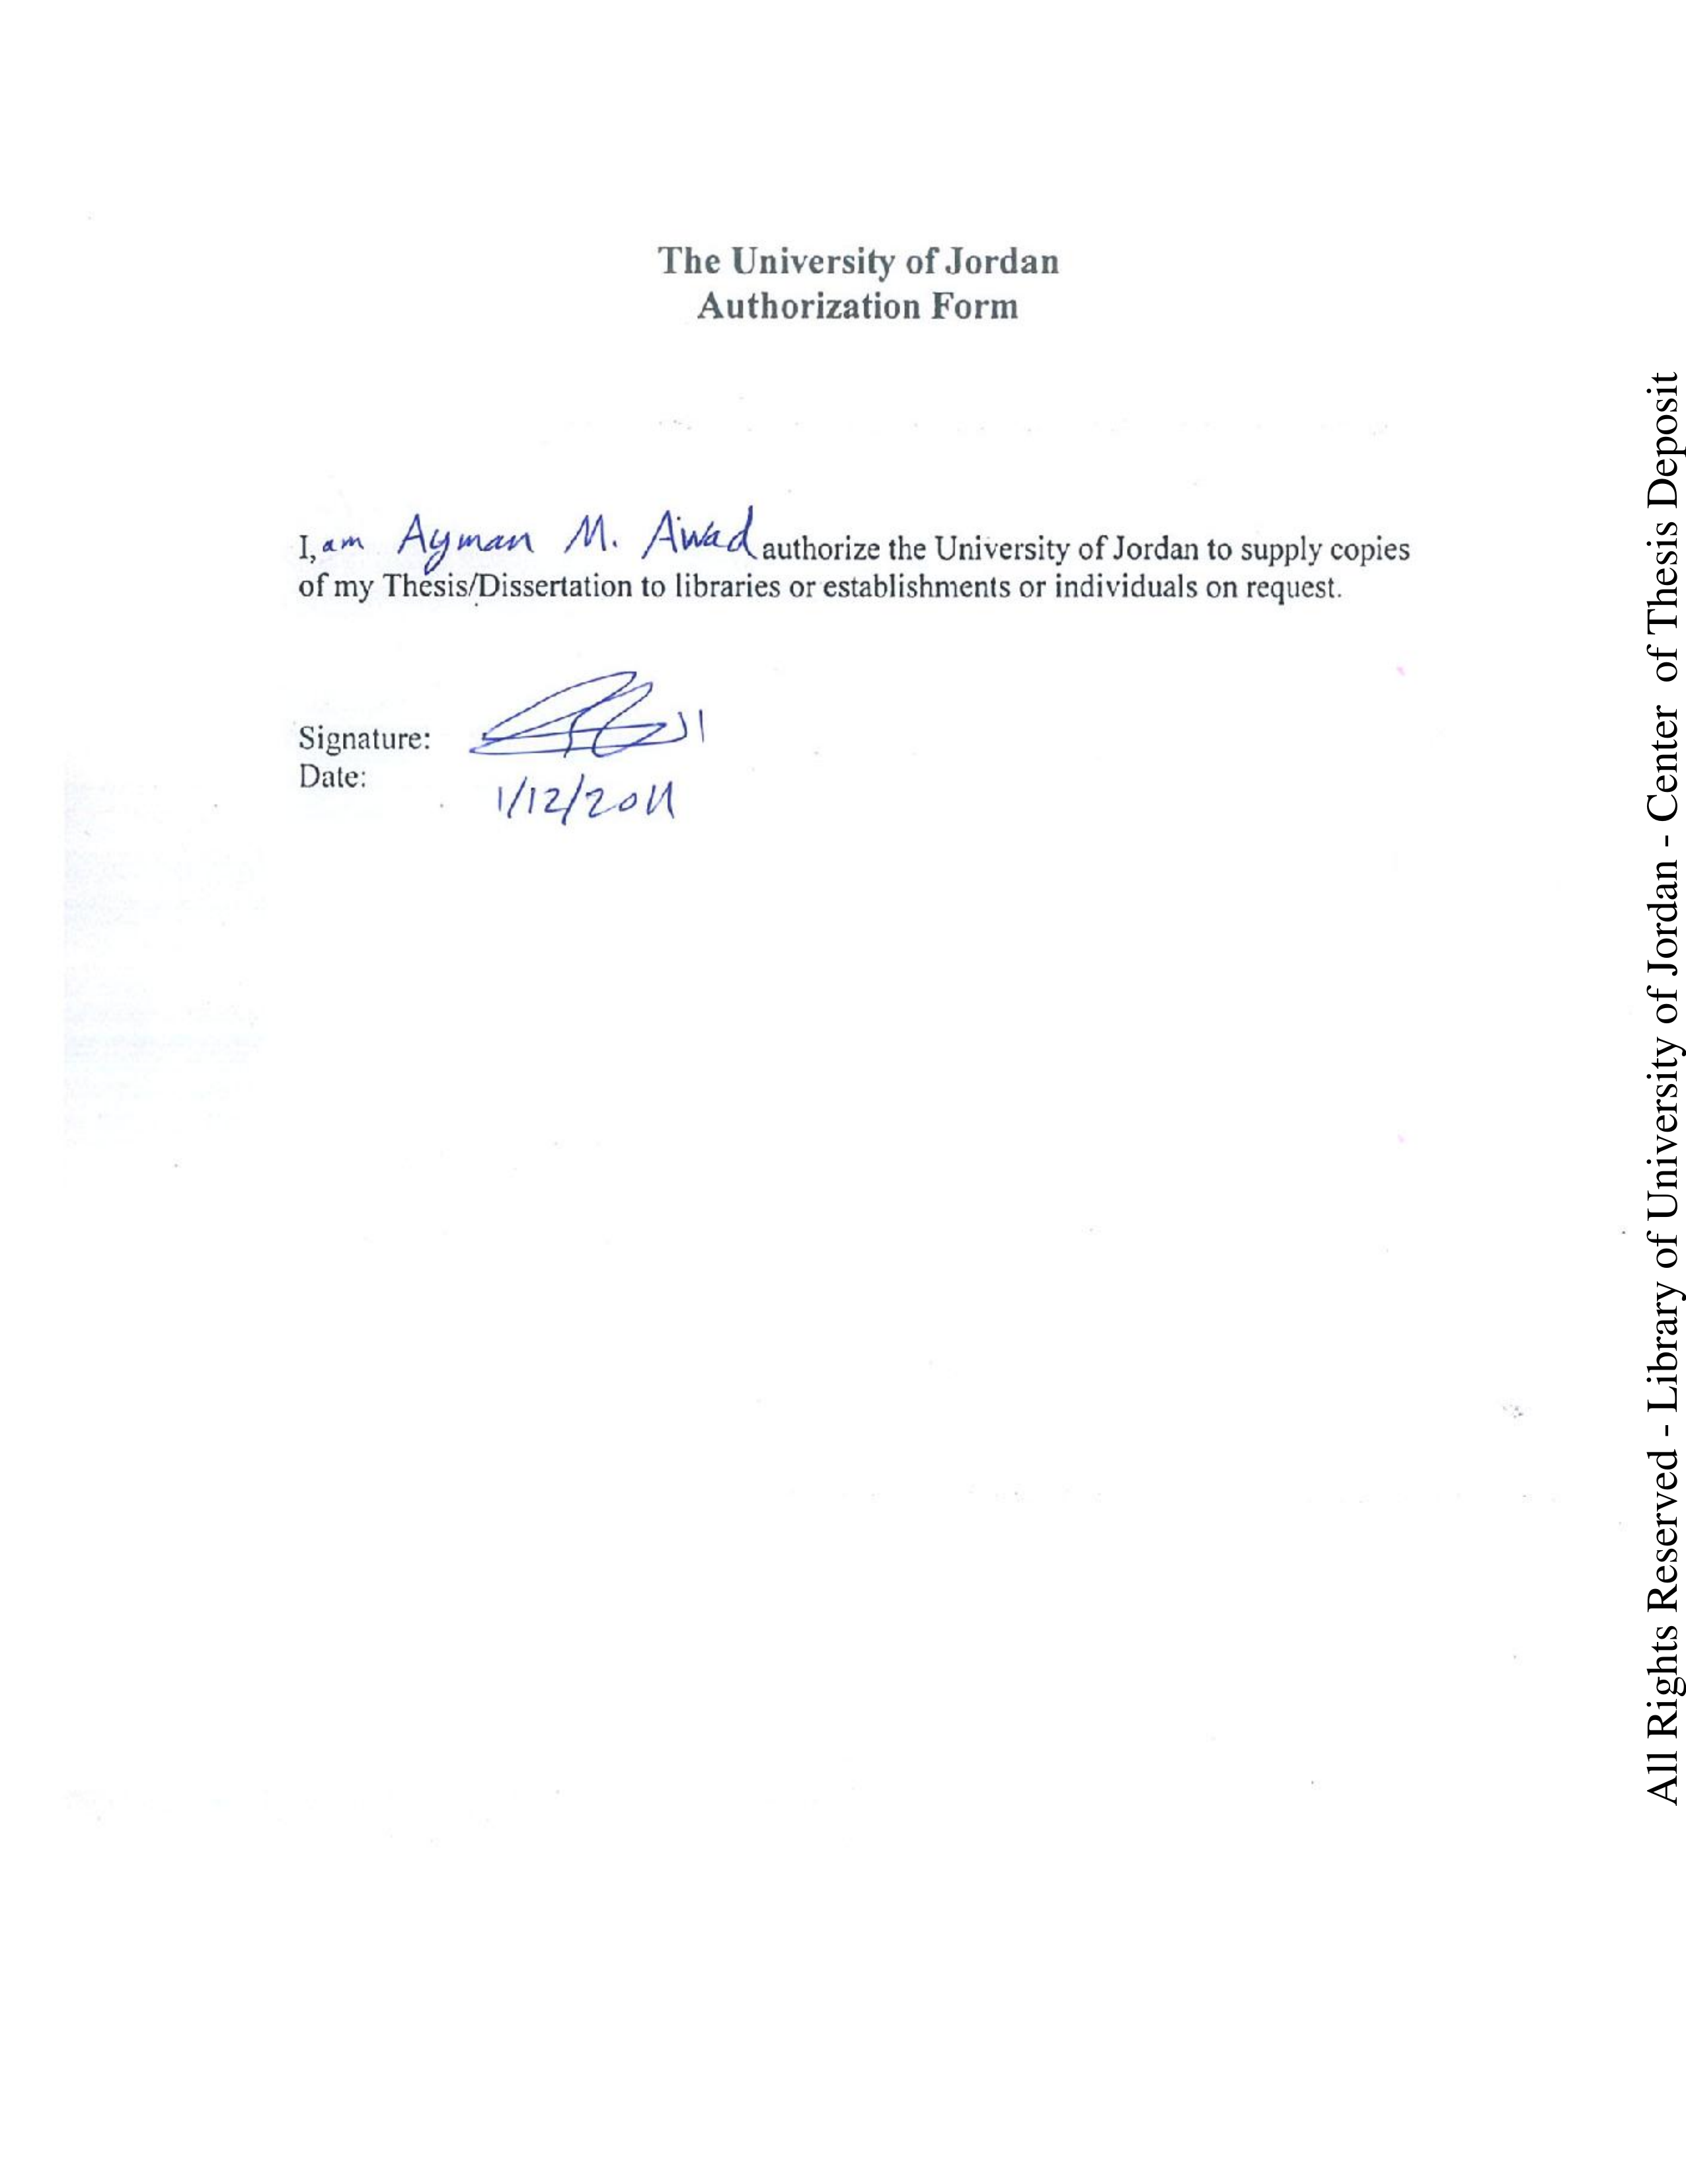 The University of Jordan
Authorization Form
I, am Ayman M. Awad authorize the University of Jordan to supply copies
of my Thesis/Dissertation to libraries or establishments or individuals on request.
Signature:
Date:
1/12/2011
All Rights Reserved - Library of University of Jordan - Center of Thesis Deposit